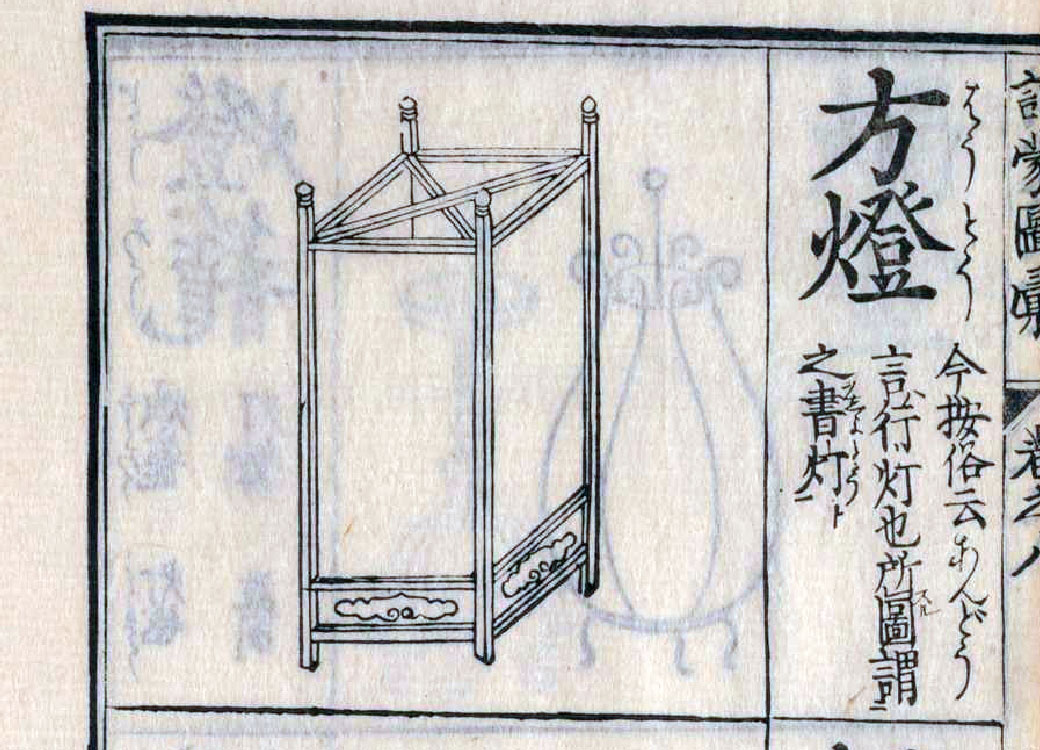 訓蒙圖彙 卷之八
方燈
はうとう
今按俗云あんどう
言ハ行灯也所スル圖謂
之書灯ト